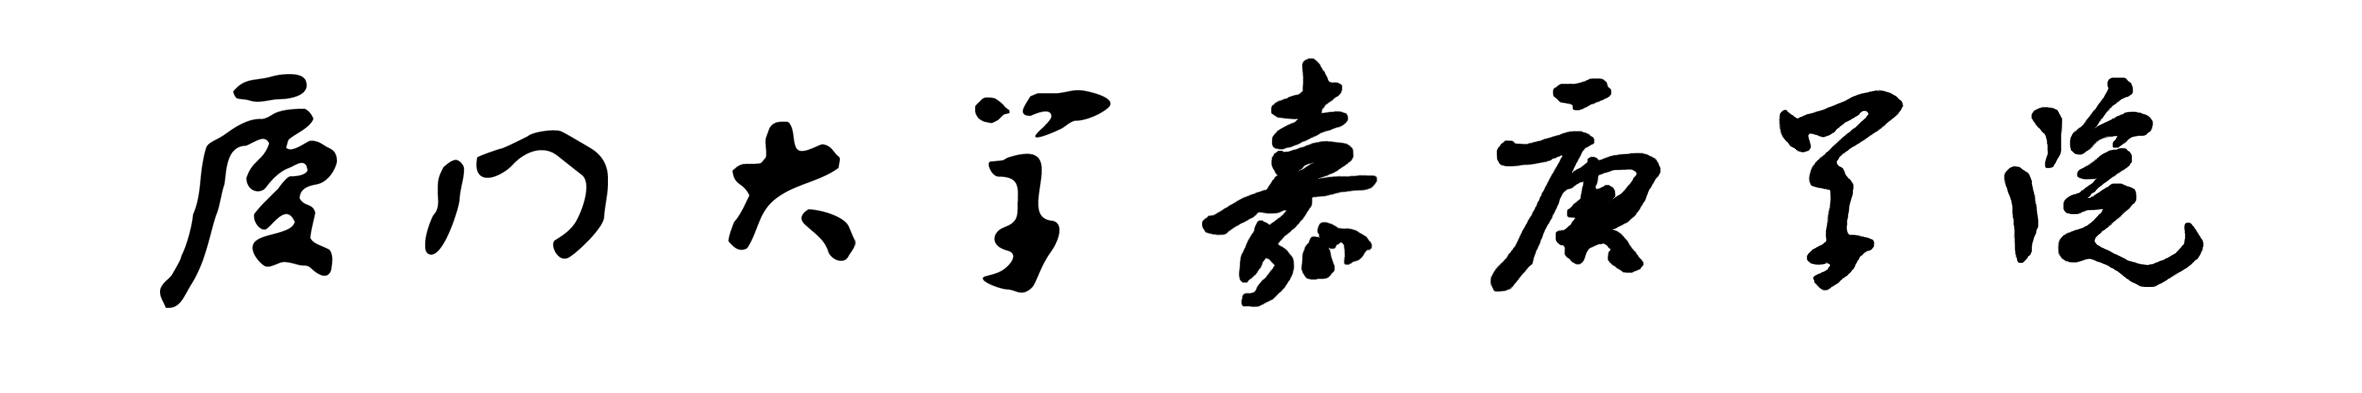 厦门大学嘉庚学院